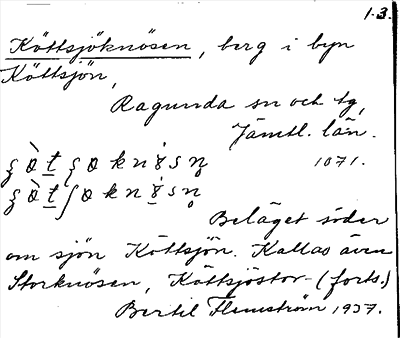 1.3.
Köttsjöknösen, berg i byn
Köttsjön,
Ragunda sn och tg,
Jämtl. län.
1071.
Beläget söder
om sjön Köttsjön. Kallas även
Storknösen, Köttsjöstor- (forts.)
Bertil Flemström 1937.